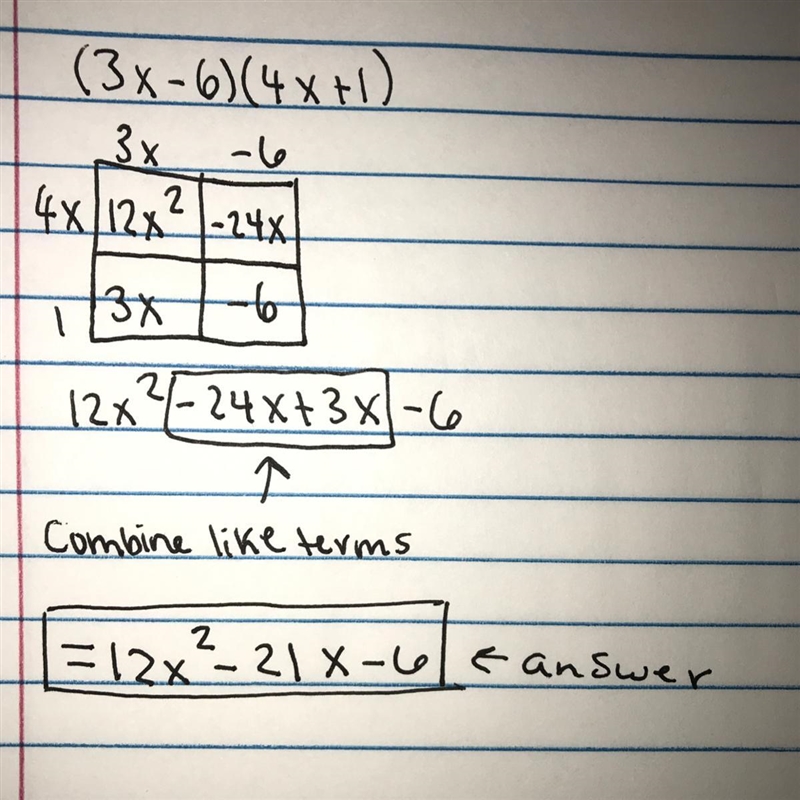 (3x-6)(4x+1)
3x -6
4x 12x² -24x
1 3x -6
12x² -24x+3x -6
↑
Combine like terms
=12x²-21x-6 ← answer